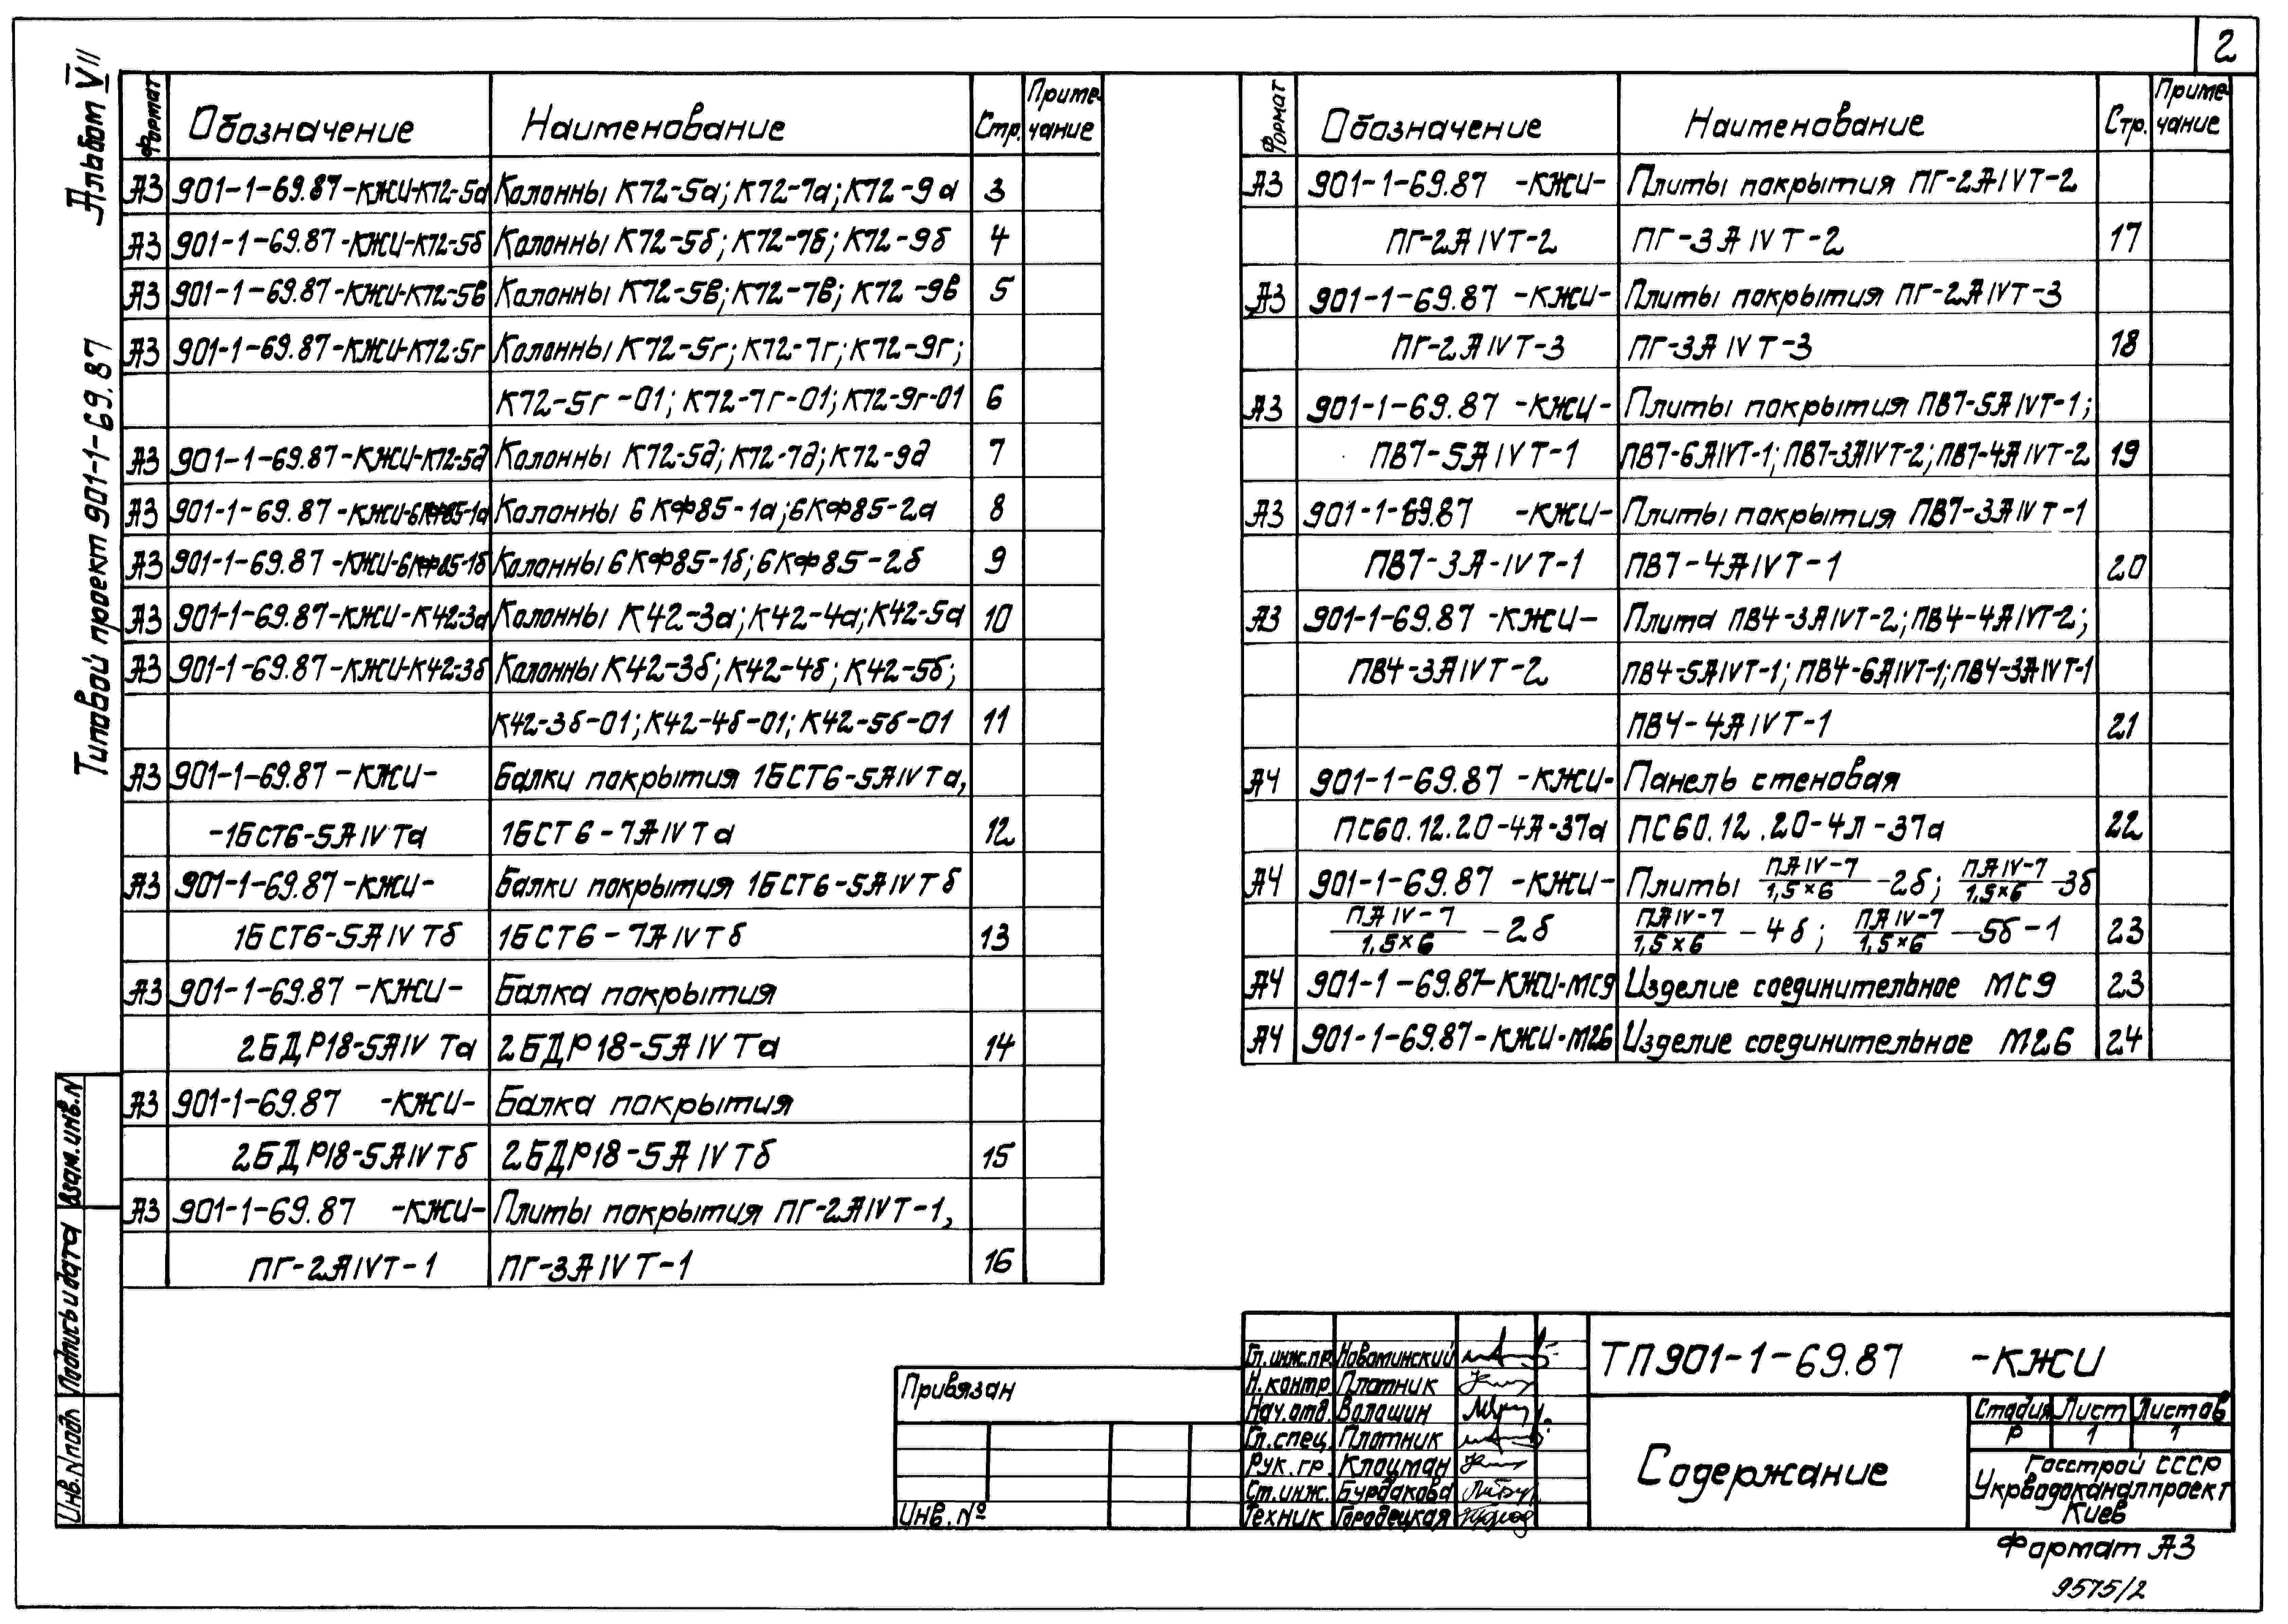 2
Альбом VII
Типовой проект 901-1-69.87
Формат Обозначение Наименование Стр. Приме-чание
А3 901-1-69.87-КЖИ-К72-5а Колонны К72-5а; К72-7а; К72-9а 3
А3 901-1-69.87-КЖИ-К72-5б Колонны К72-5б; К72-7б; К72-9б 4
А3 901-1-69.87-КЖИ-К72-5в Колонны К72-5в; К72-7в; К72-9в 5
А3 901-1-69.87-КЖИ-К72-5г Колонны К72-5г; К72-7г; К72-9г;
К72-5г-01; К72-7г-01; К72-9г-01 6
А3 901-1-69.87-КЖИ-К72-5д Колонны К72-5д; К72-7д; К72-9д 7
А3 901-1-69.87-КЖИ-6КФ85-1а Колонны 6КФ85-1а; 6КФ85-2а 8
А3 901-1-69.87-КЖИ-6КФ85-1б Колонны 6КФ85-1б; 6КФ85-2б 9
А3 901-1-69.87-КЖИ-К42-3а Колонны К42-3а; К42-4а; К42-5а 10
А3 901-1-69.87-КЖИ-К42-3б Колонны К42-3б; К42-4б; К42-5б;
К42-3б-01; К42-4б-01; К42-5б-01 11
А3 901-1-69.87-КЖИ- Балки покрытия 1БСТ6-5АIVТа,
-1БСТ6-5АIVТа 1БСТ6-7АIVТа 12
А3 901-1-69.87-КЖИ- Балки покрытия 1БСТ6-5АIVТб
1БСТ6-5АIVТб 1БСТ6-7АIVТб 13
А3 901-1-69.87-КЖИ- Балка покрытия
2БДР18-5АIVТа 2БДР18-5АIVТа 14
А3 901-1-69.87 -КЖИ- Балка покрытия
2БДР18-5АIVТб 2БДР18-5АIVТб 15
А3 901-1-69.87 -КЖИ- Плиты покрытия ПГ-2АIVТ-1,
ПГ-2АIVТ-1 ПГ-3АIVТ-1 16
Формат Обозначение Наименование Стр. Приме-чание
А3 901-1-69.87 -КЖИ- Плиты покрытия ПГ-2АIVТ-2
ПГ-2АIVТ-2 ПГ-3АIVТ-2 17
А3 901-1-69.87 -КЖИ- Плиты покрытия ПГ-2АIVТ-3
ПГ-2АIVТ-3 ПГ-3АIVТ-3 18
А3 901-1-69.87 -КЖИ- Плиты покрытия ПВ7-5АIVТ-1;
ПВ7-5АIVТ-1 ПВ7-6АIVТ-1; ПВ7-3АIVТ-2; ПВ7-4АIVТ-2 19
А3 901-1-69.87 -КЖИ- Плиты покрытия ПВ7-3АIVТ-1
ПВ7-3А-IVТ-1 ПВ7-4АIVТ-1 20
А3 901-1-69.87 -КЖИ- Плита ПВ4-3АIVТ-2; ПВ4-4АIVТ-2;
ПВ4-3АIVТ-2 ПВ4-5АIVТ-1; ПВ4-6АIVТ-1; ПВ4-3АIVТ-1
ПВ4-4АIVТ-1 21
А4 901-1-69.87 -КЖИ- Панель стеновая
ПС60.12.20-4Л-37а ПС60.12.20-4Л-37а 22
А4 901-1-69.87 -КЖИ- Плиты ПАIV-7/1,5×6 -2б; ПАIV-7/1,5×6 -3б
ПАIV-7/1,5×6 -2б ПАIV-7/1,5×6 -4б; ПАIV-7/1,5×6 -5б-1 23
А4 901-1-69.87-КЖИ-МС9 Изделие соединительное МС9 23
А4 901-1-69.87-КЖИ-М26 Изделие соединительное М26 24
Взам.инв.N
Подпись и дата
Инв.N подл
Привязан
Инв.№
Гл.инж.пр. Новоминский
Н.контр. Плотник
Нач.отд. Волошин
Гл.спец. Плотник
Рук.гр. Клоцман
Ст.инж. Бурдакова
Техник Городецкая
ТП901-1-69.87 -КЖИ
Содержание
Стадия Лист Листов
Р 1 1
Госстрой СССР
Укрводоканалпроект
Киев
Формат А3
9575/2